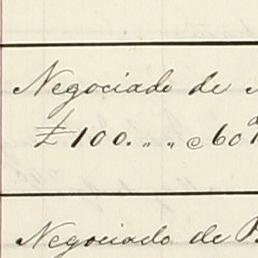 Negociado de
£100. „ „ @ 60d
Negociado de B